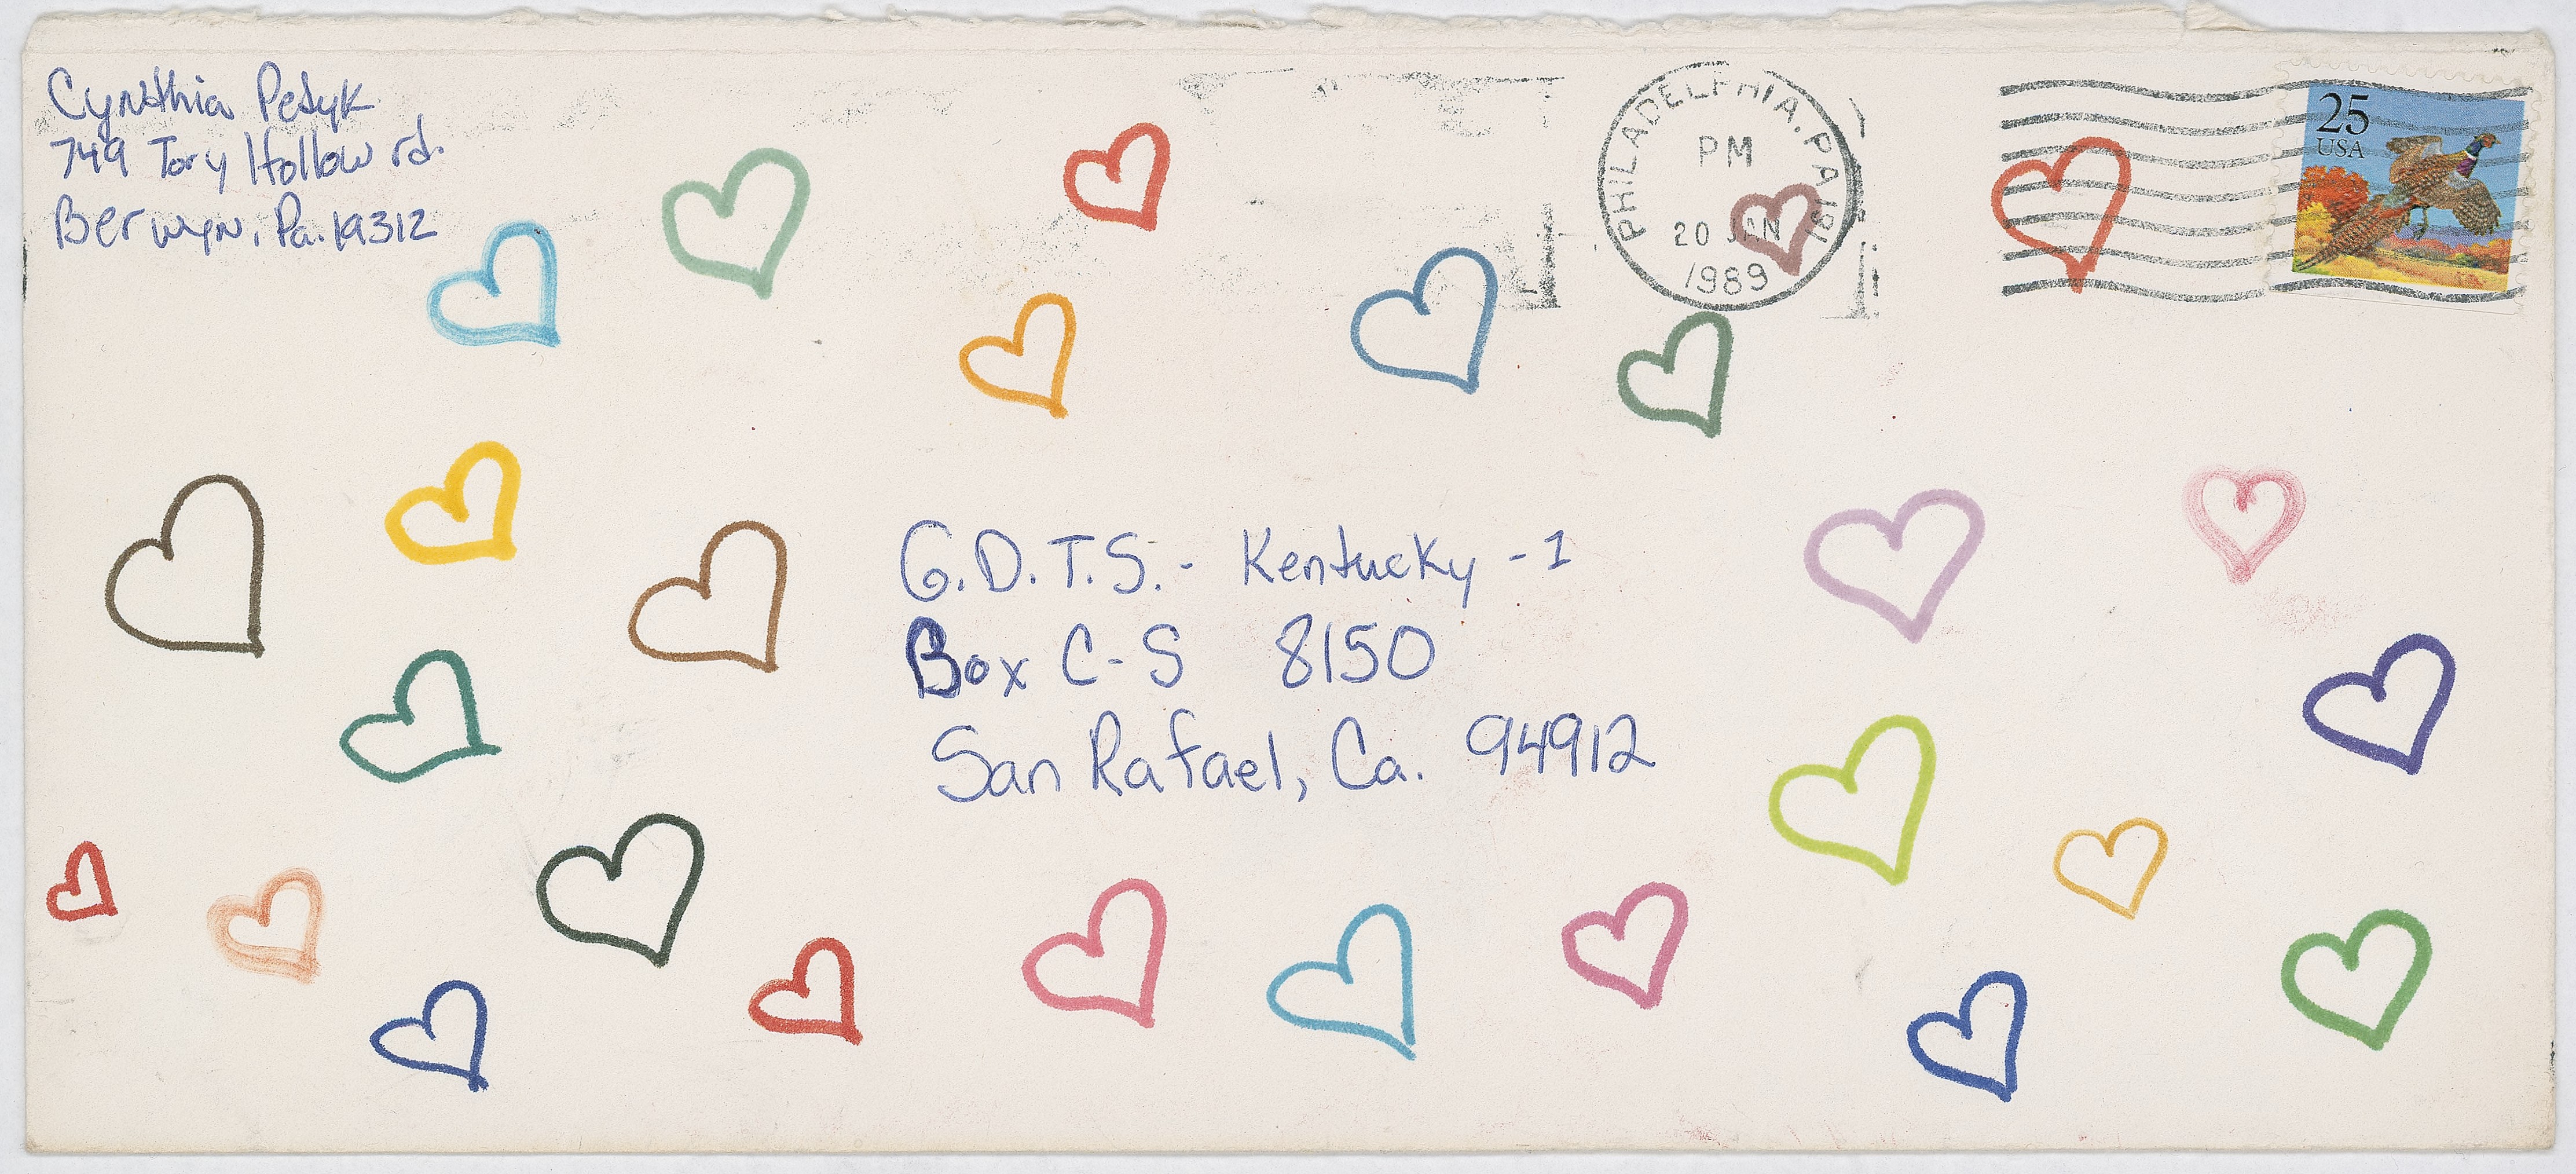 Cynthia Petyk
749 Tory Hollow rd.
Berwyn, Pa. 19312
PHILADELPHIA, PA 191
PM
20 JAN
1989
25
USA
G.D.T.S. - Kentucky - 1
Box C-S 8150
San Rafael, Ca. 94912